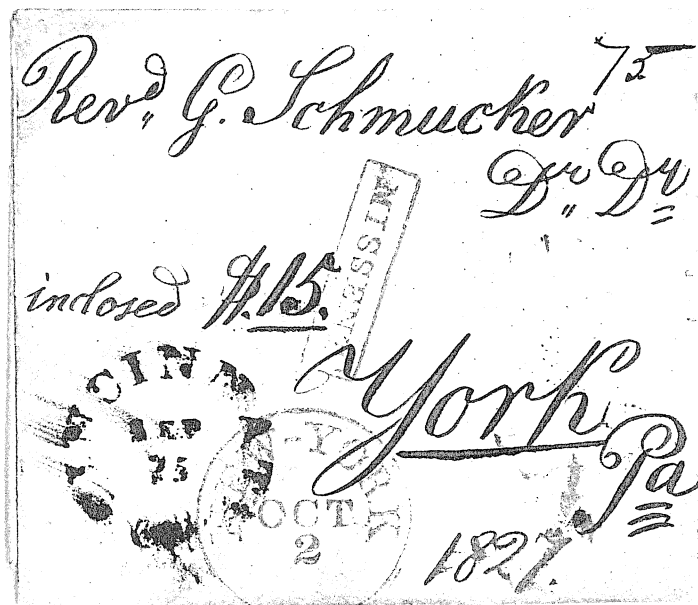 75
Revd. G. Schmucker
Dr. Dy
MISSEN
inclosed $.15.
York
Pa
CINA
SEP
25
NEW-YORK
OCT
2
1827.